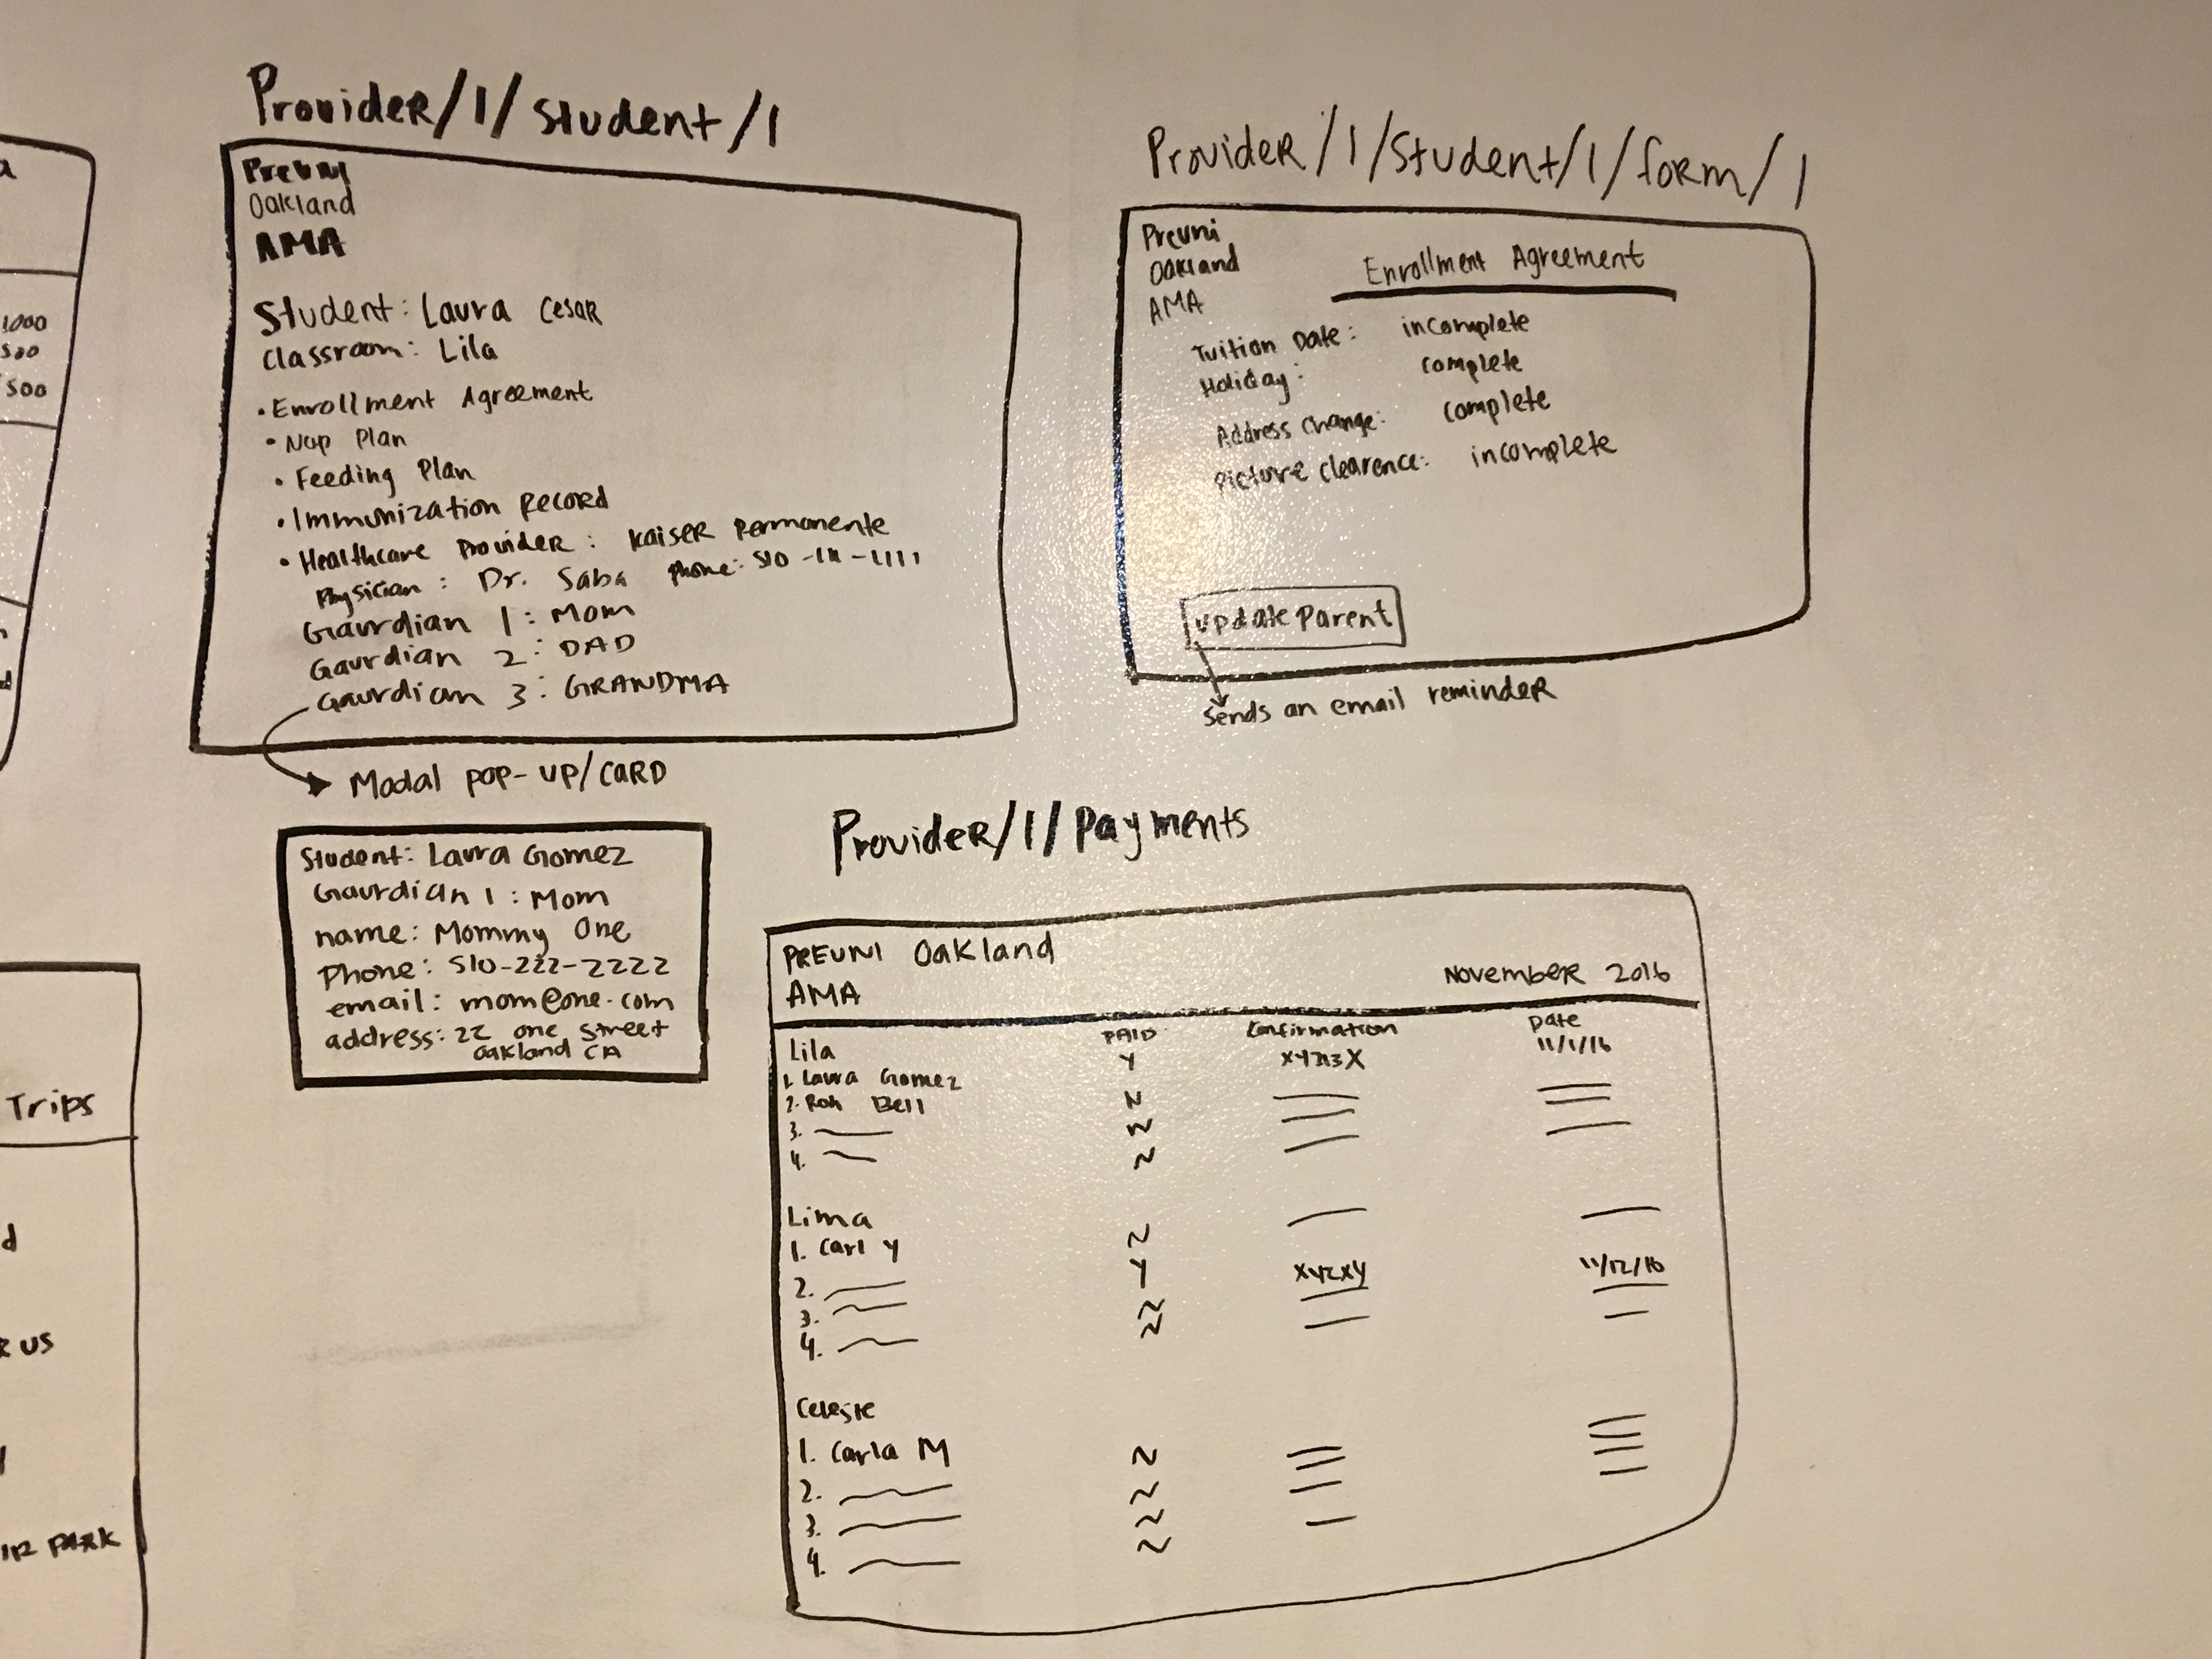 a
1000
500
500
Trips
d
R US
PARK
Provider/1/student/1
Preuni
Oakland
AMA
Student: Laura Cesar
Classroom: Lila
• Enrollment Agreement
• Nap Plan
• Feeding Plan
• Immunization Record
• Healthcare Provider: Kaiser Permanente
Physician: Dr. Saba Phone: 510-111-1111
Gaurdian 1: Mom
Gaurdian 2: DAD
Gaurdian 3: GRANDMA
Modal pop-up/CARD
Student: Laura Gomez
Gaurdian 1: Mom
name: Mommy One
Phone: 510-222-2222
email: mom@one.com
address: 22 one street
Oakland CA
Provider/1/student/1/form/1
Preuni
Oakland
AMA
Enrollment Agreement
Tuition Date: incomplete
Holiday: complete
Address Change: complete
Picture Clearence: incomplete
update Parent
Sends an email reminder
Provider/1/Payments
PREUNI Oakland
AMA
November 2016
PAID Confirmation Date
Lila Y 11/1/16
1. Laura Gomez
2. Bell N
3. N
4. N
Lima
1. Carl Y N
2. Y XYZXY 11/12/16
3. N
4. N
Celeste
1. Carla M N
2. N
3. N
4. N